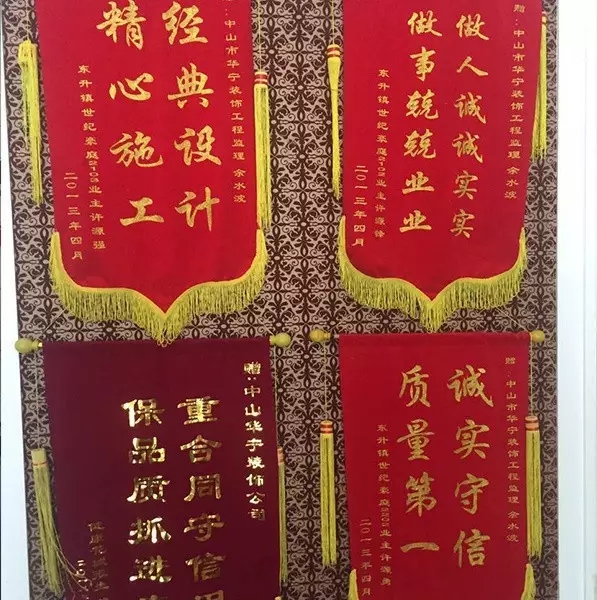 :中山市华宁装饰工程监理 余水波
经典设计
精心施工
东升镇世纪豪庭2103业主许源强
二〇一三年四月
赠:中山市华宁装饰工程监理 余水波
做人诚诚实实
做事兢兢业业
东升镇世纪豪庭2102业主许源锋
二〇一三年四月
赠:中山华宁装饰公司
重合同守信用
保品质抓进
赠:中山市华宁装饰工程监理 余水波
诚实守信
质量第一
东升镇世纪豪庭2202业主许源勇
二〇一三年四月